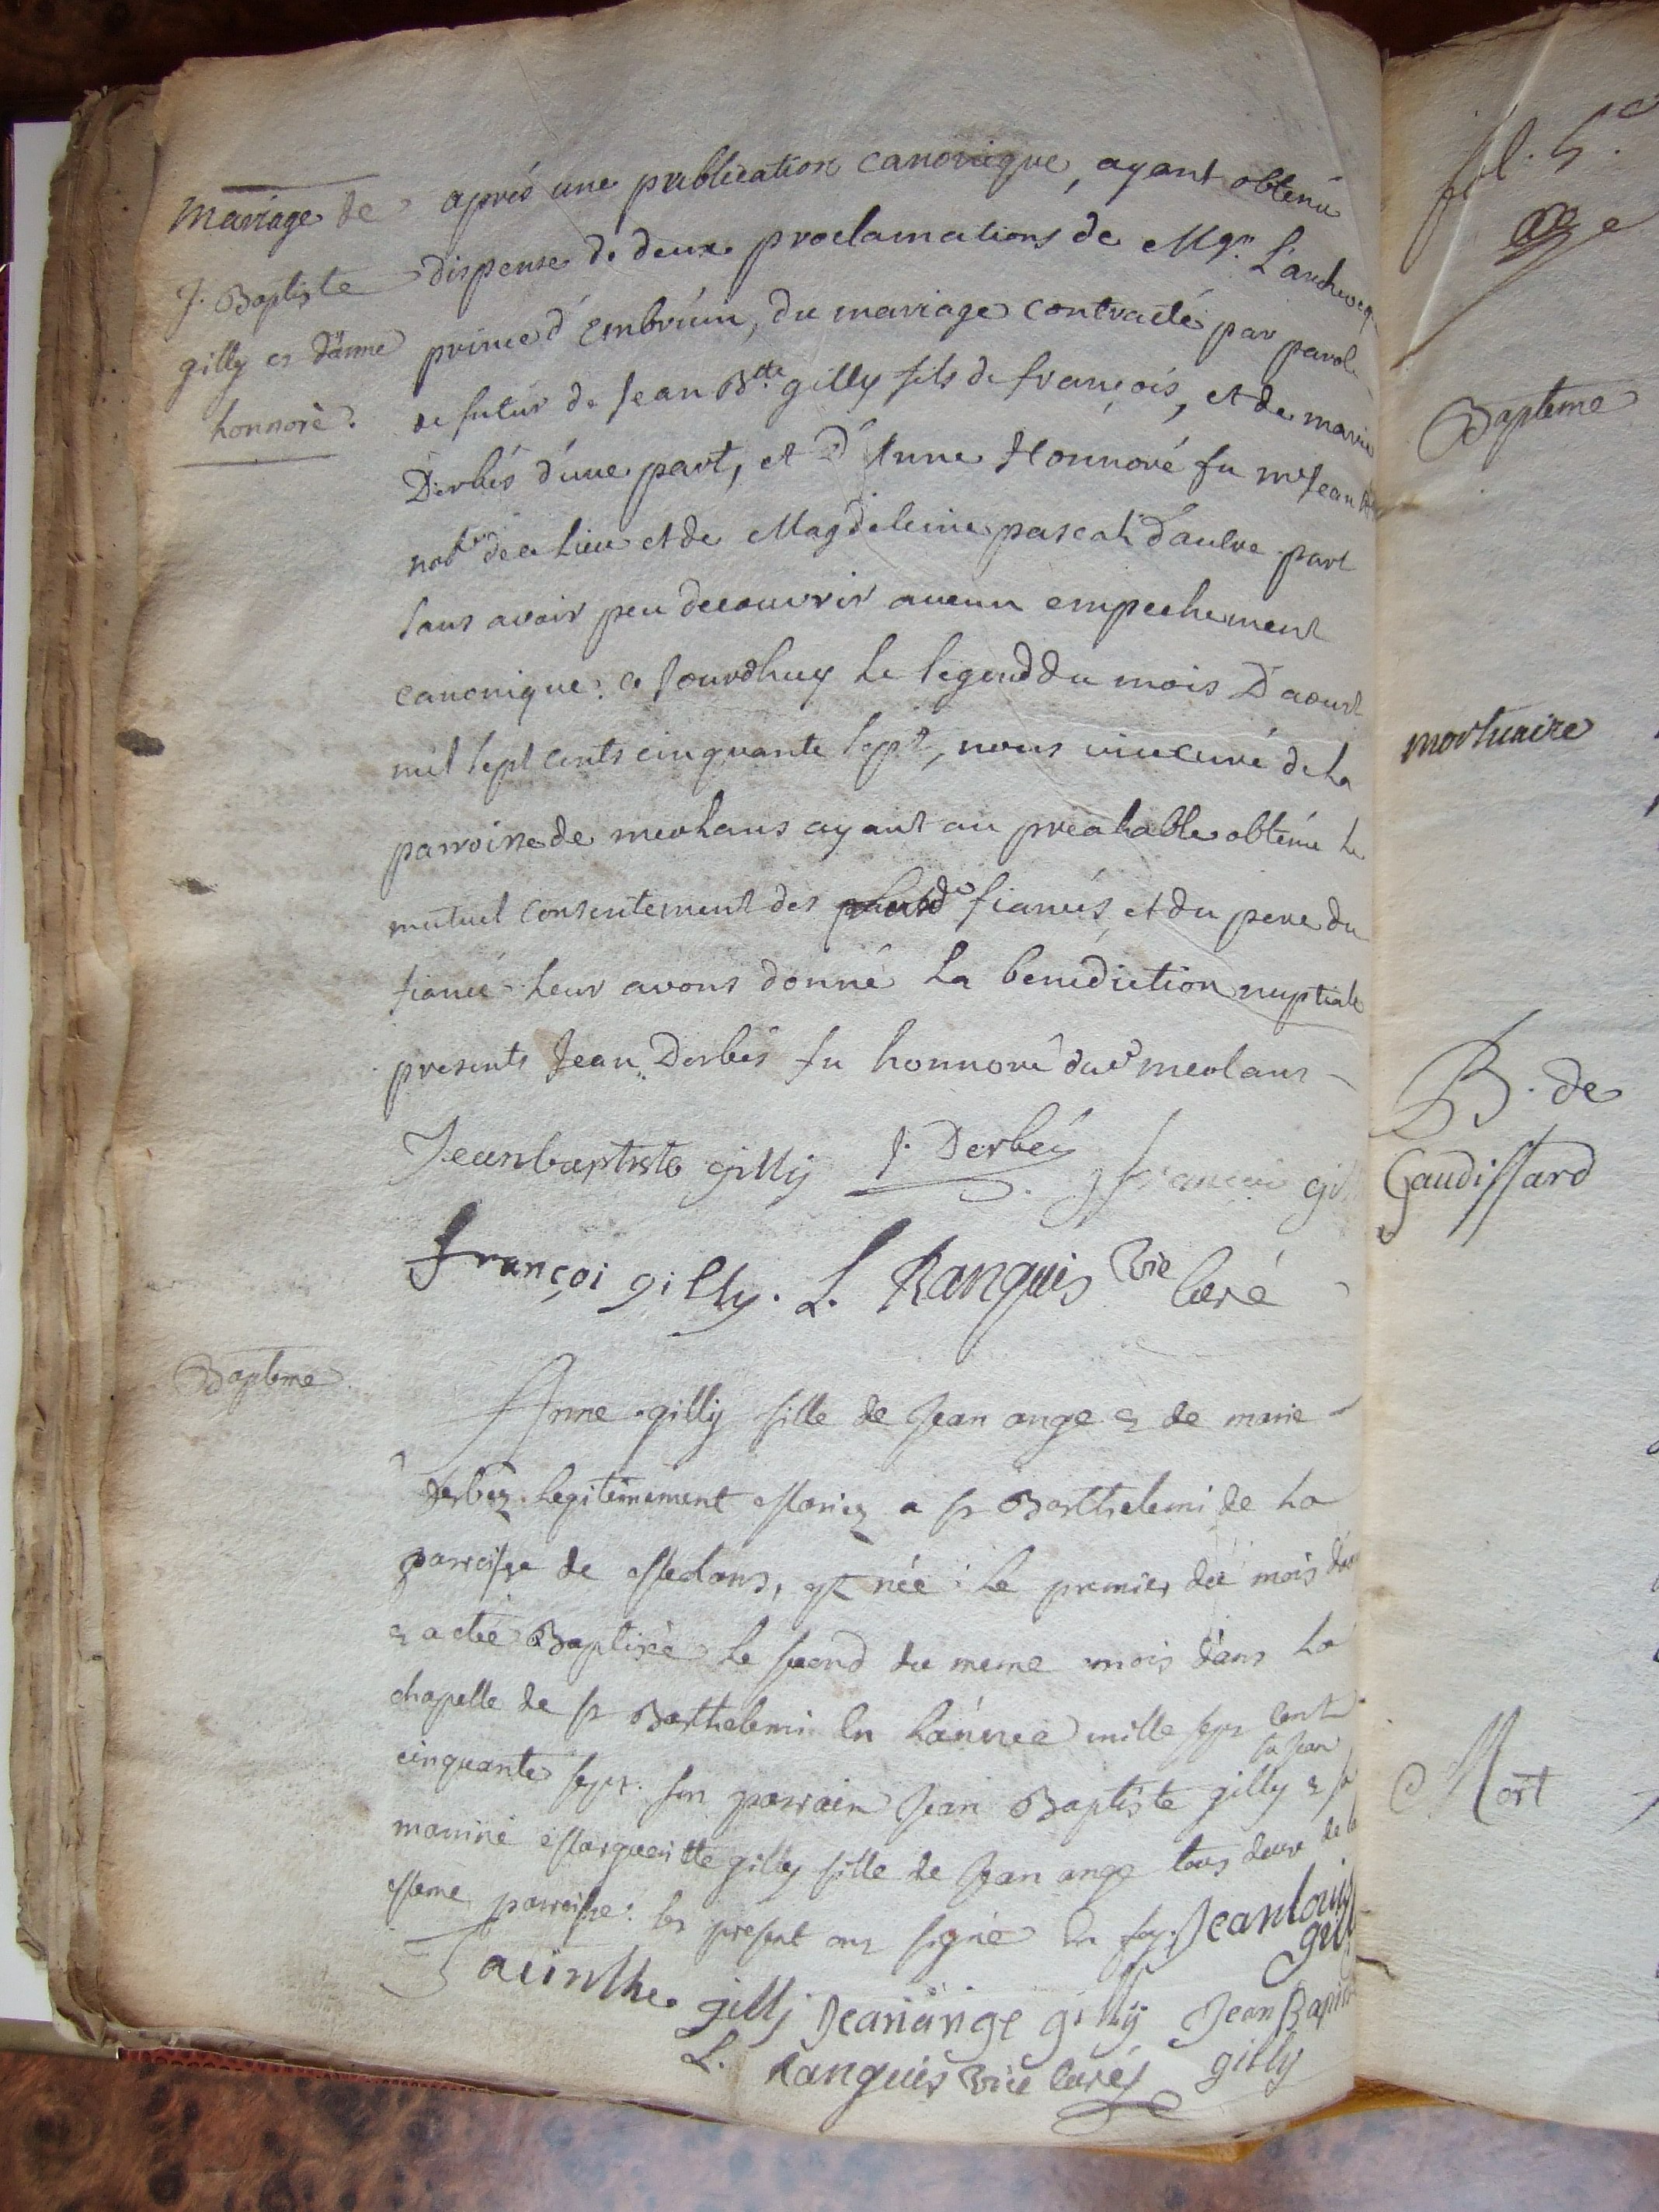 mariage de
J. Baptiste
gilly et d'anne
honnoré.
après une publication canonique, ayant obtenu
dispense de deux proclamations de Mgr. L'archeveq
prince d'embrun, du mariage contracté par parole
de futur de Jean Btte gilly fils de françois, et de marie
Derbés d'une part, et d'Anne Honnoré fu me Jean
notre de ce lieu et de Magdeleine pascal d'autre part
sans avoir peu decouvrir aucun empechement
canonique. ce Jourdhuy le segond du mois D'aoust
mil sept cents cinquante sept, nous vicecuré de la
parroisse de meolans ayant au prealable obtenu le
mutuel consentement des fiancés, et du pere du
fiancé leur avons donné la benediction nuptiale
presents Jean Derbés fu honnoré dud meolans
Jeanbaptiste gilly J. Derbés françoi gil
françoi gilly. L. Ranguis vic curé
Bapteme
Anne gilly fille de Jean ange & de marie
derbez legitimement mariez a st Barthelemi de la
parroisse de Meolans, est née le premier du mois
& a eté Baptisée le second du meme mois dans la
chapelle de st Barthelemi en l'année mille sept cent
cinquante sept. son parrain Jean Baptiste gilly fu Jean & sa
marrine Marguerite gilly fille de Jean ange tous deux de la
meme parroisse. les present ont signé en foy. Jeanlouis
gilly
Jacinthe gilly Jeanange gilly Jean Baptiste
L. Ranguis vice curé gilly
fol. 5.e
Bapteme
mortuaire
B. de
Gaudissard
Mort